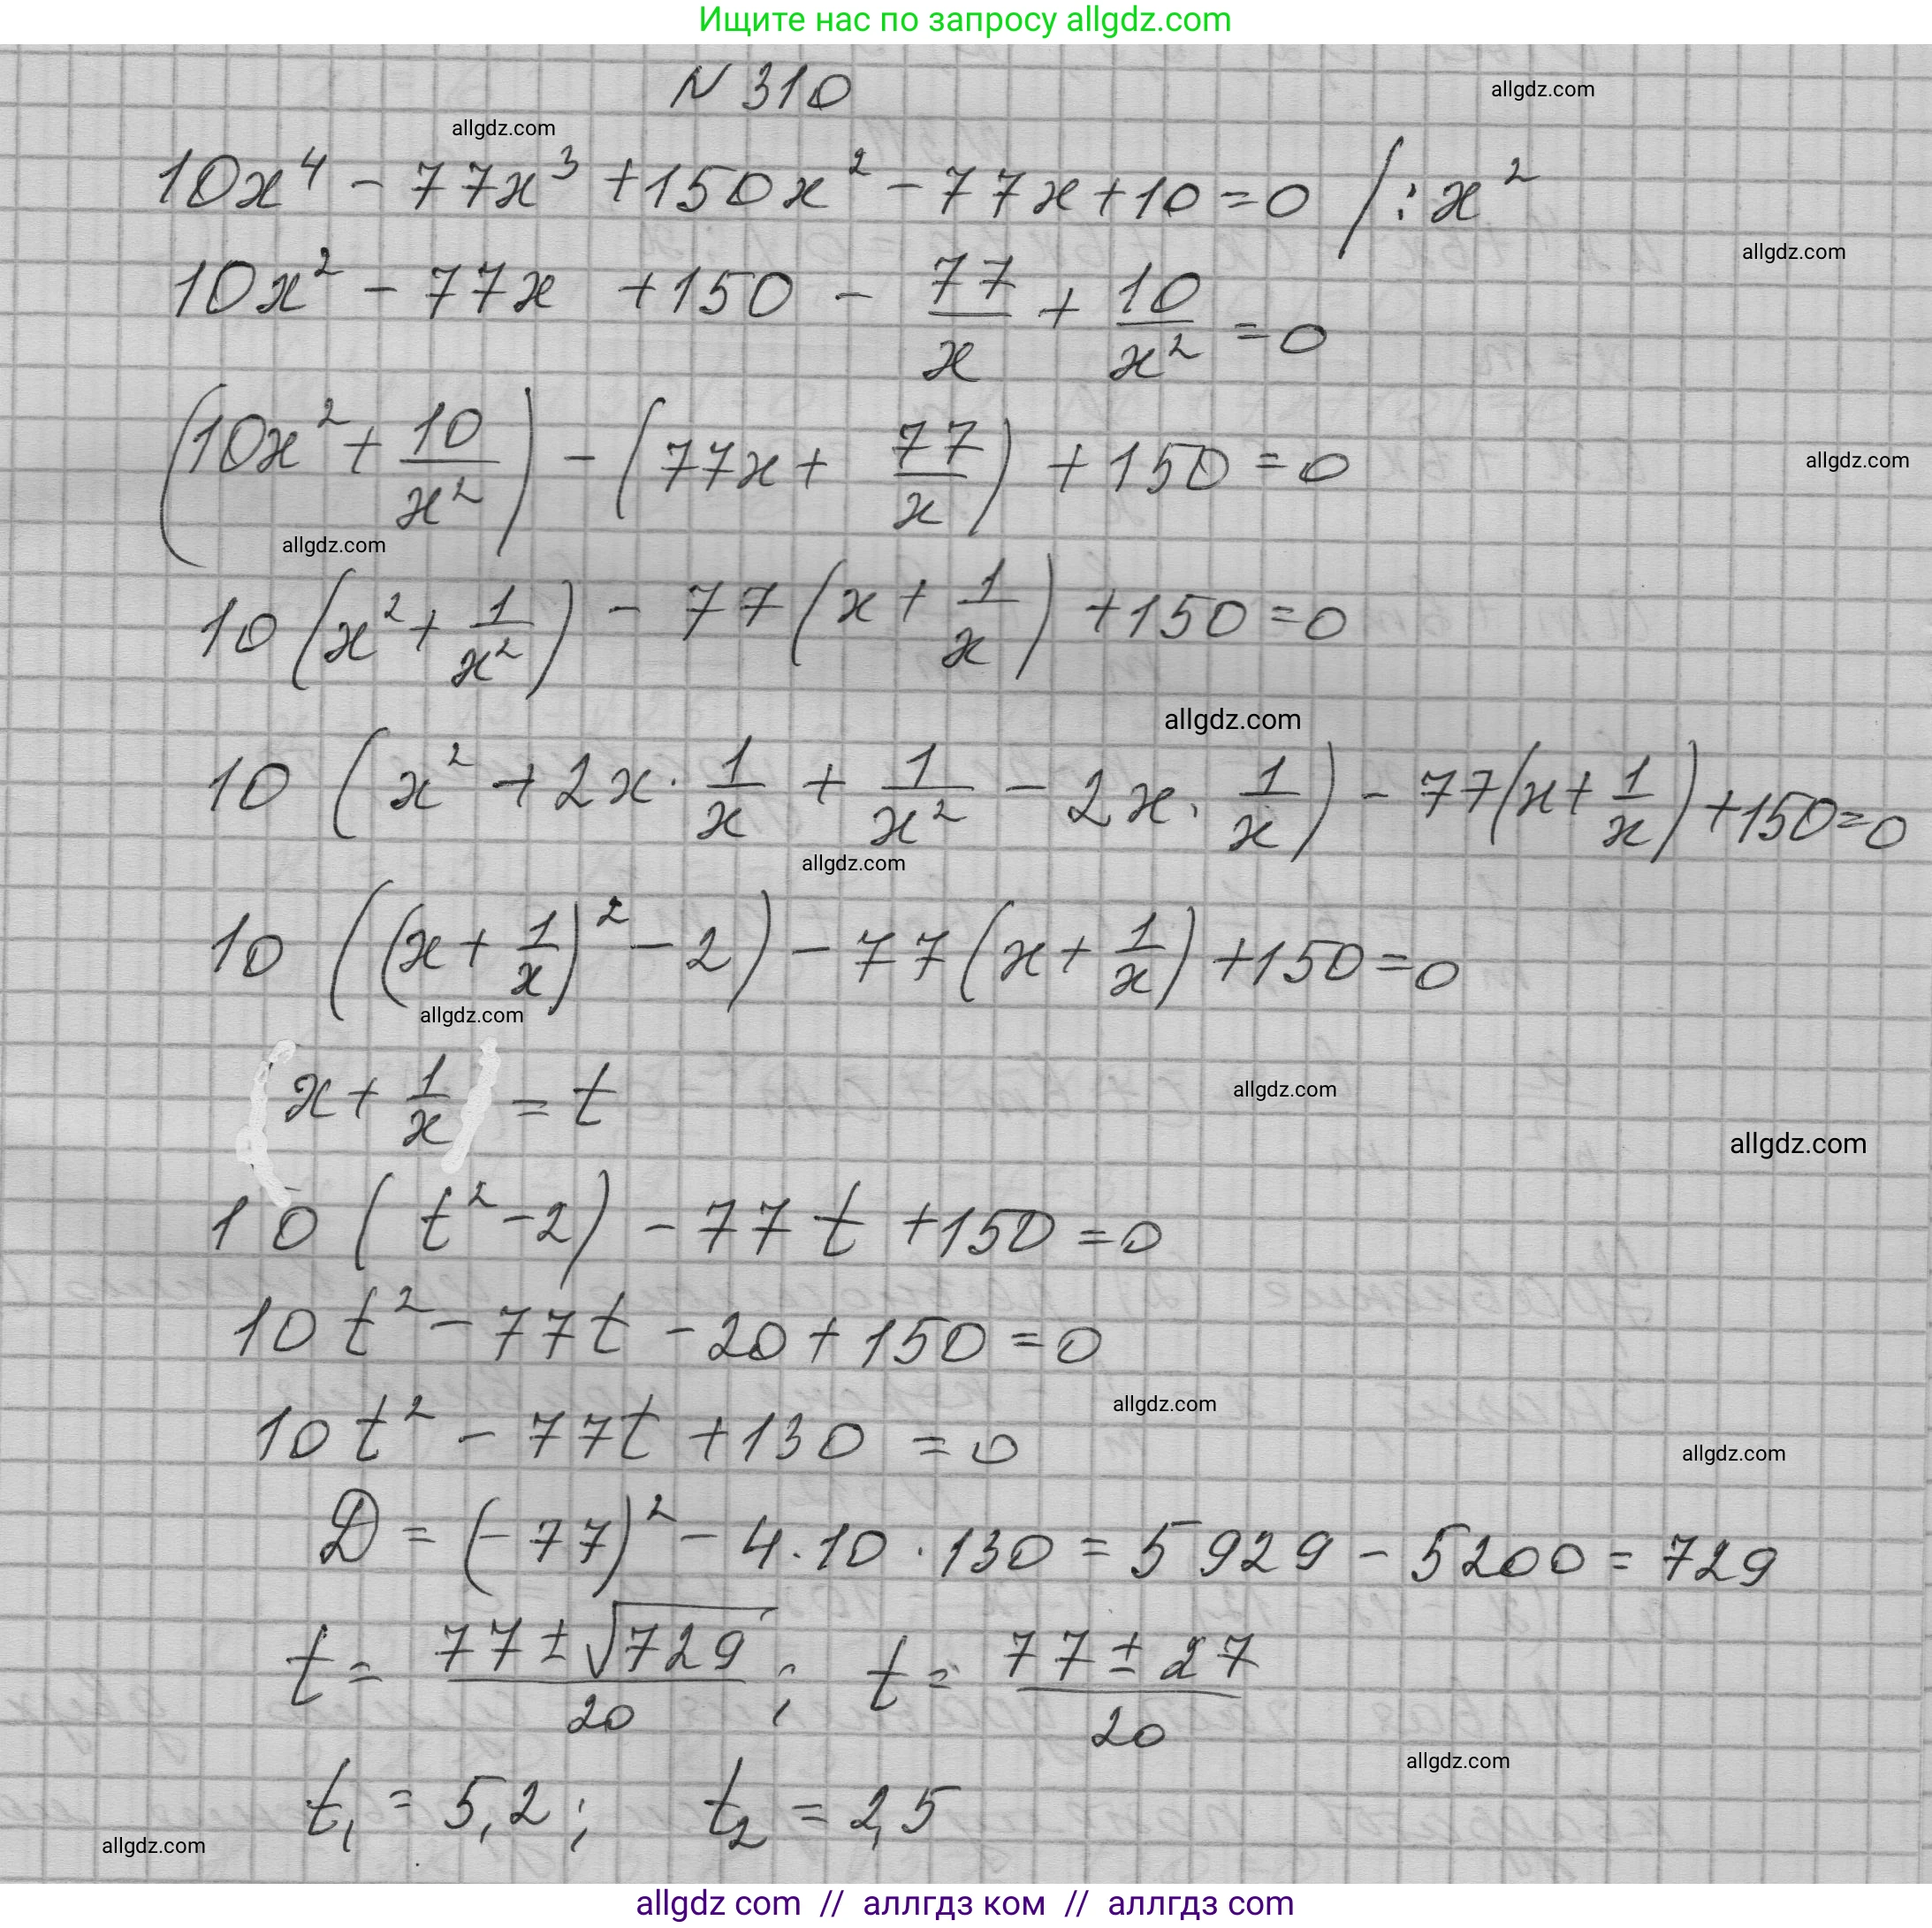 Ищите нас по запросу allgdz.com
N 310
allgdz.com
allgdz.com
10x⁴ - 77x³ + 150x² - 77x + 10 = 0 / : x²
allgdz.com
10x² - 77x + 150 - 77/x + 10/x² = 0
(10x² + 10/x²) - (77x + 77/x) + 150 = 0
allgdz.com
allgdz.com
10(x² + 1/x²) - 77(x + 1/x) + 150 = 0
allgdz.com
10(x² + 2x · 1/x + 1/x² - 2x · 1/x) - 77(x + 1/x) + 150 = 0
allgdz.com
10((x + 1/x)² - 2) - 77(x + 1/x) + 150 = 0
allgdz.com
x + 1/x = t
allgdz.com
allgdz.com
10(t² - 2) - 77t + 150 = 0
10t² - 77t - 20 + 150 = 0
allgdz.com
10t² - 77t + 130 = 0
allgdz.com
D = (-77)² - 4 · 10 · 130 = 5929 - 5200 = 729
t = (77 ± √729)/20 ; t = (77 ± 27)/20
allgdz.com
t₁ = 5,2 ; t₂ = 2,5
allgdz.com
allgdz com // аллгдз ком // аллгдз com